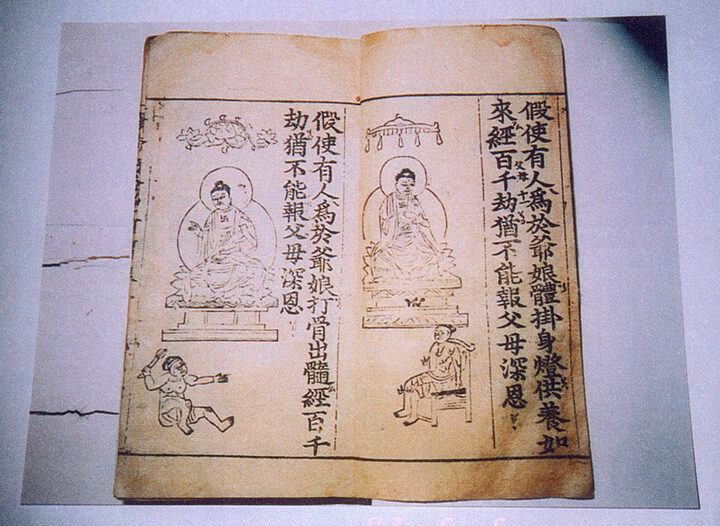 假使有人爲於爺娘體掛身燈供養如
來經百千劫猶不能報父母深恩
假使有人爲於爺娘打骨出髓經百千
劫猶不能報父母深恩